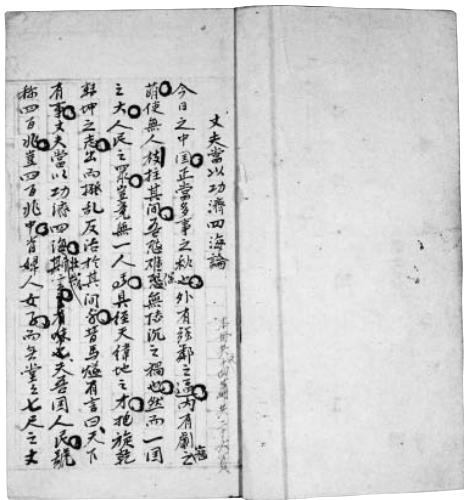 丈夫當以功濟四海論
今日之中国正當多事之秋也外有强鄰之逼内有劇之
萌使無人枝拄其間吾恐難保無陸沉之禍也然而一国
之大人民之眾豈竟無一人焉具經天緯地之才抱旋乾
坤之志出而撥乱反治於其間乎晋馬燧有言曰天下
有事丈夫當以功濟四海有味也夫吾国人民號
称四百兆豈四百兆中皆婦人女子而無堂之七尺之丈